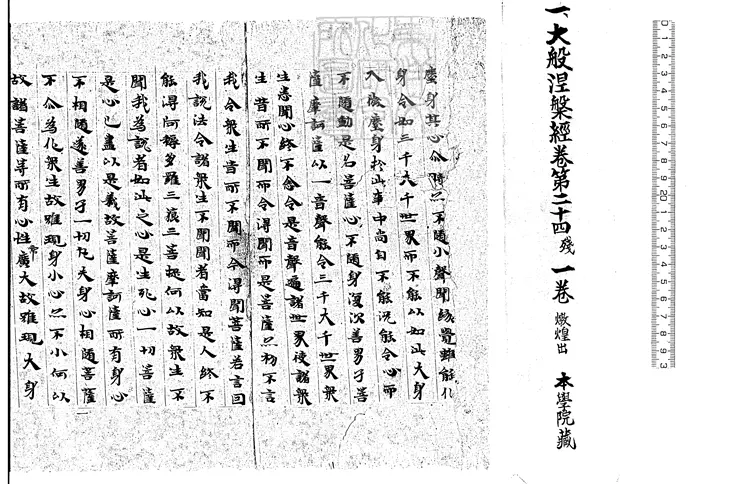 一、大般涅槃經卷第二十四 殘 一卷 燉煌出 本學院藏
塵身其心尒時亦不隨小聲聞緣覺雖能化
身令如三千大千世界而不能以如此大身
入微塵身於此事中尚自不能況能令心而
不隨動是名菩薩心不隨身復次善男子菩
薩摩訶薩以一音聲能令三千大千世界衆
生悉聞心終不念令是音聲遍諸世界使諸衆
生昔所不聞而令得聞而是菩薩亦初不言
我令衆生昔所不聞而今得聞菩薩若言因
我說法令諸衆生不聞聞者當知是人終不
能得阿耨多羅三藐三菩提何以故衆生不
聞我為說者如此之心是生死心一切菩薩
是心已盡以是義故菩薩摩訶薩所有身心
不相隨逐善男子一切凡夫身心相隨菩薩
不尒為化衆生故雖現身小心亦不小何以
故諸菩薩等所有心性常廣大故雖現大身